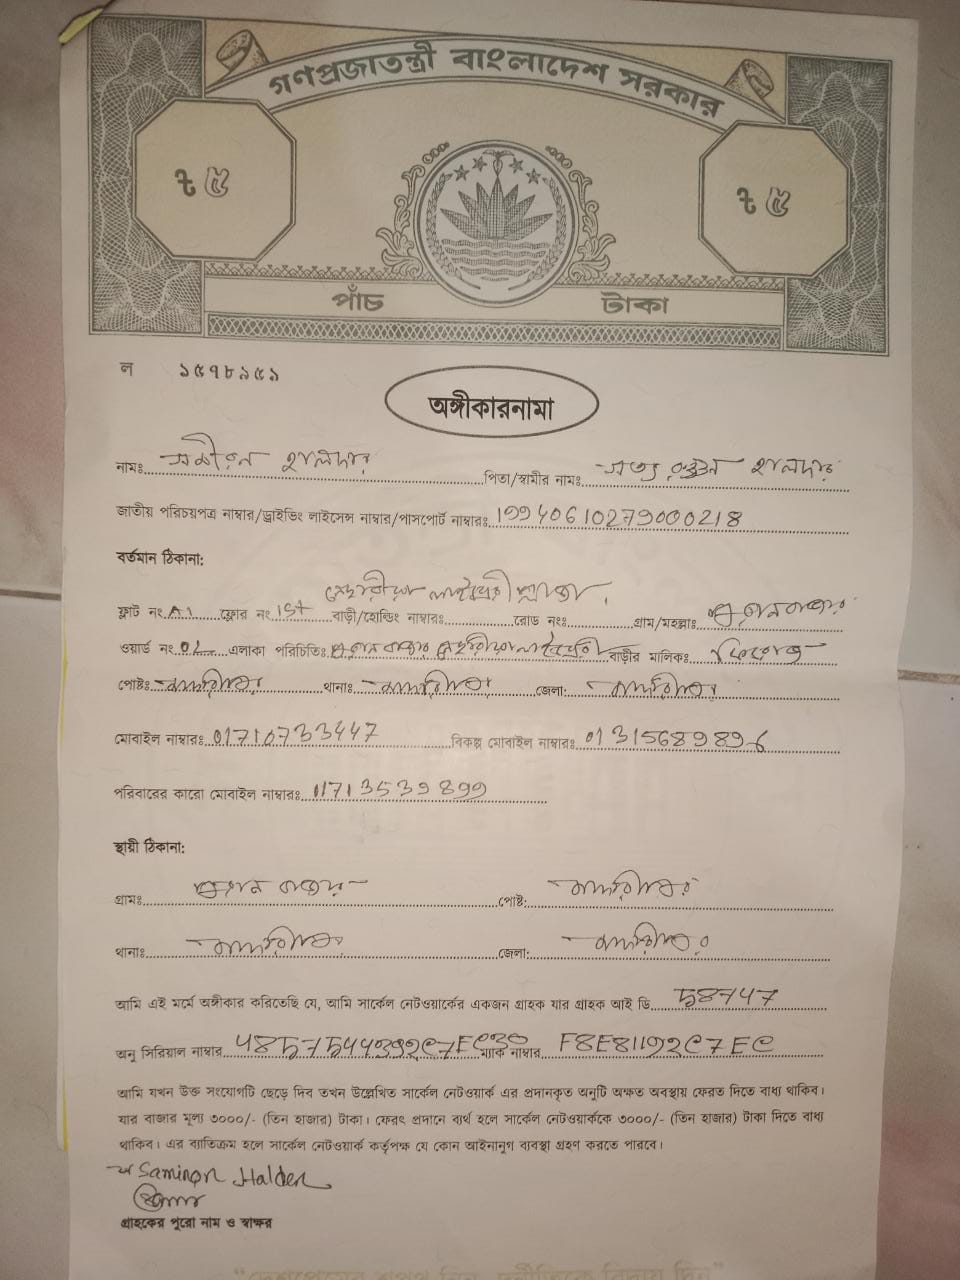 গণপ্রজাতন্ত্রী বাংলাদেশ সরকার
৳ ৫
৳ ৫
পাঁচ টাকা
ল ১৫৭৮৯৫৯
অঙ্গীকারনামা
নামঃ সমীরন হালদার পিতা/স্বামীর নামঃ সত্য রঞ্জন হালদার
জাতীয় পরিচয়পত্র নাম্বার/ড্রাইভিং লাইসেন্স নাম্বার/পাসপোর্ট নাম্বারঃ 19940610279000218
বর্তমান ঠিকানা:
ফ্লাট নং A1 ফ্লোর নং 1st বাড়ী/হোল্ডিং নাম্বারঃ রোড নংঃ গ্রাম/মহল্লাঃ
ওয়ার্ড নং 02 এলাকা পরিচিতিঃ বাড়ীর মালিকঃ ফিরোজ
পোষ্টঃ থানাঃ জেলা:
মোবাইল নাম্বারঃ 01710733447 বিকল্প মোবাইল নাম্বারঃ 01315689896
পরিবারের কারো মোবাইল নাম্বারঃ 01713539899
স্থায়ী ঠিকানা:
গ্রামঃ পোষ্ট:
থানাঃ জেলা:
আমি এই মর্মে অঙ্গীকার করিতেছি যে, আমি সার্কেল নেটওয়ার্কের একজন গ্রাহক যার গ্রাহক আই ডি 58747
অনু সিরিয়াল নাম্বার ম্যাক নাম্বার F8E81192C7EC
আমি যখন উক্ত সংযোগটি ছেড়ে দিব তখন উল্লেখিত সার্কেল নেটওয়ার্ক এর প্রদানকৃত অনুটি অক্ষত অবস্থায় ফেরত দিতে বাধ্য থাকিব।
যার বাজার মূল্য ৩০০০/- (তিন হাজার) টাকা। ফেরৎ প্রদানে ব্যর্থ হলে সার্কেল নেটওয়ার্ককে ৩০০০/- (তিন হাজার) টাকা দিতে বাধ্য
থাকিব। এর ব্যাতিক্রম হলে সার্কেল নেটওয়ার্ক কর্তৃপক্ষ যে কোন আইনানুগ ব্যবস্থা গ্রহণ করতে পারবে।
Samiron Halder
গ্রাহকের পুরো নাম ও স্বাক্ষর